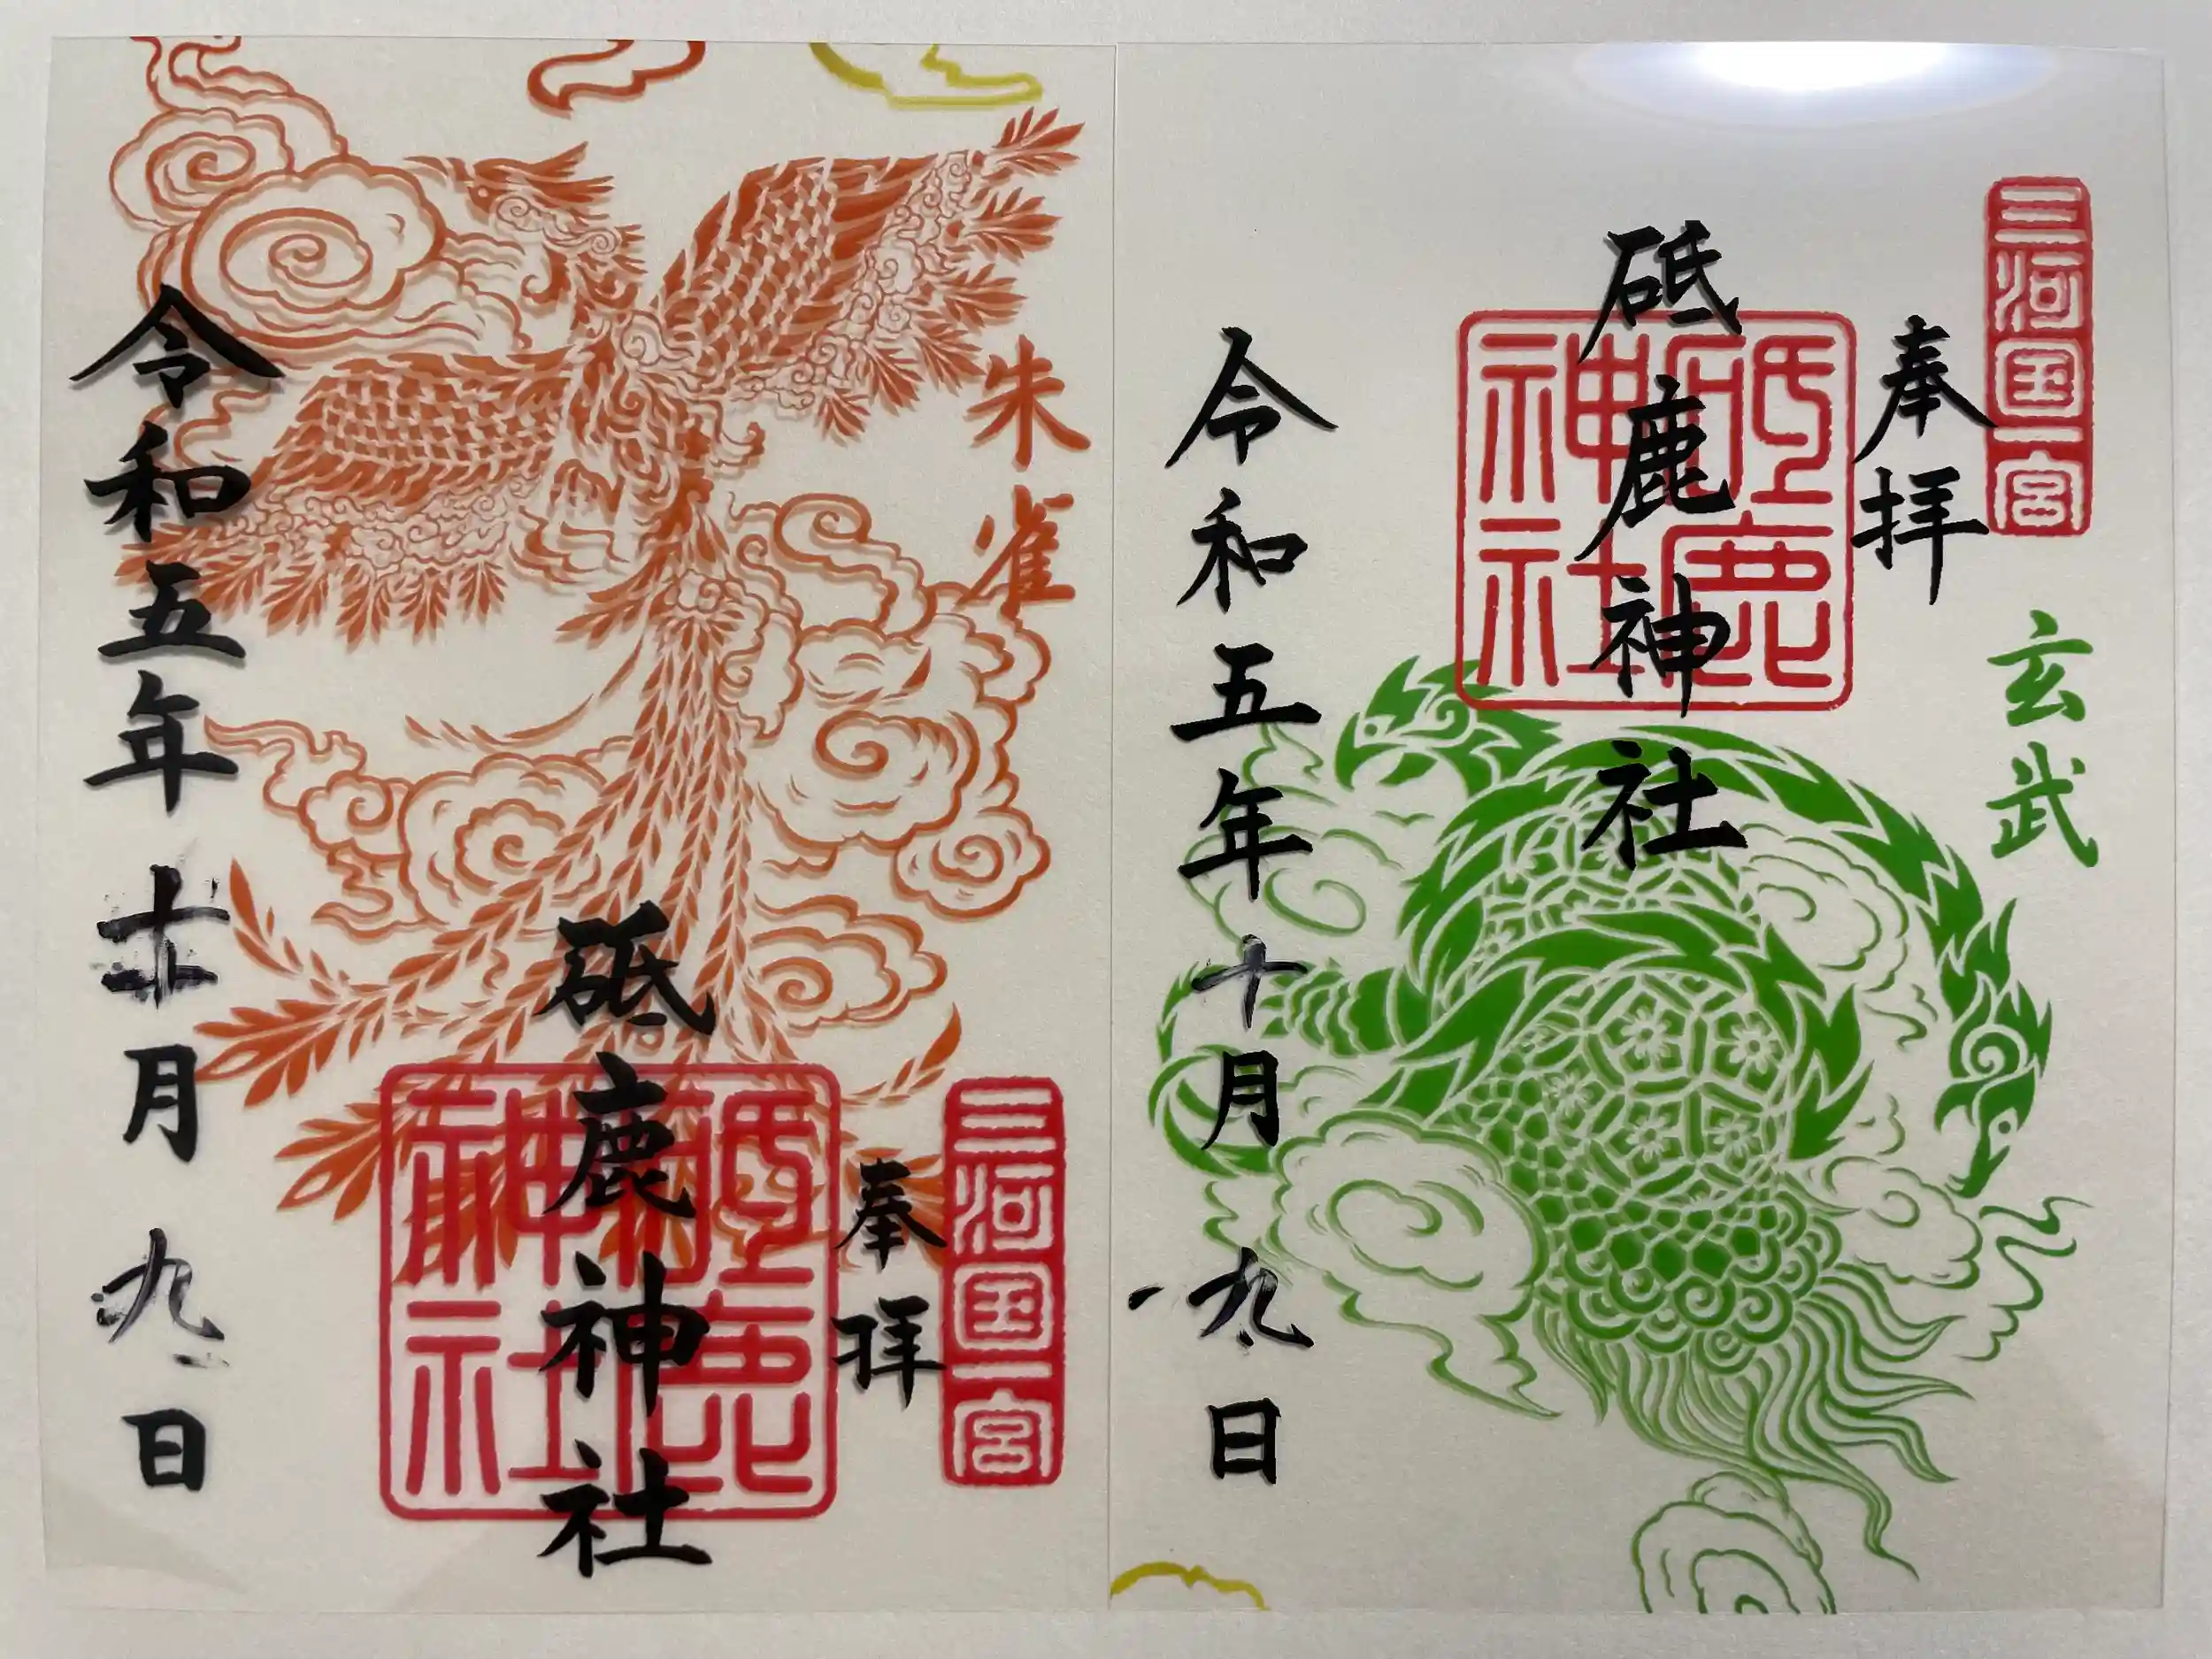 三河国一宮
奉拝
玄武
砥鹿神社
砥鹿神社
令和五年十月九日
朱雀
三河国一宮
奉拝
砥鹿神社
砥鹿神社
令和五年十月九日